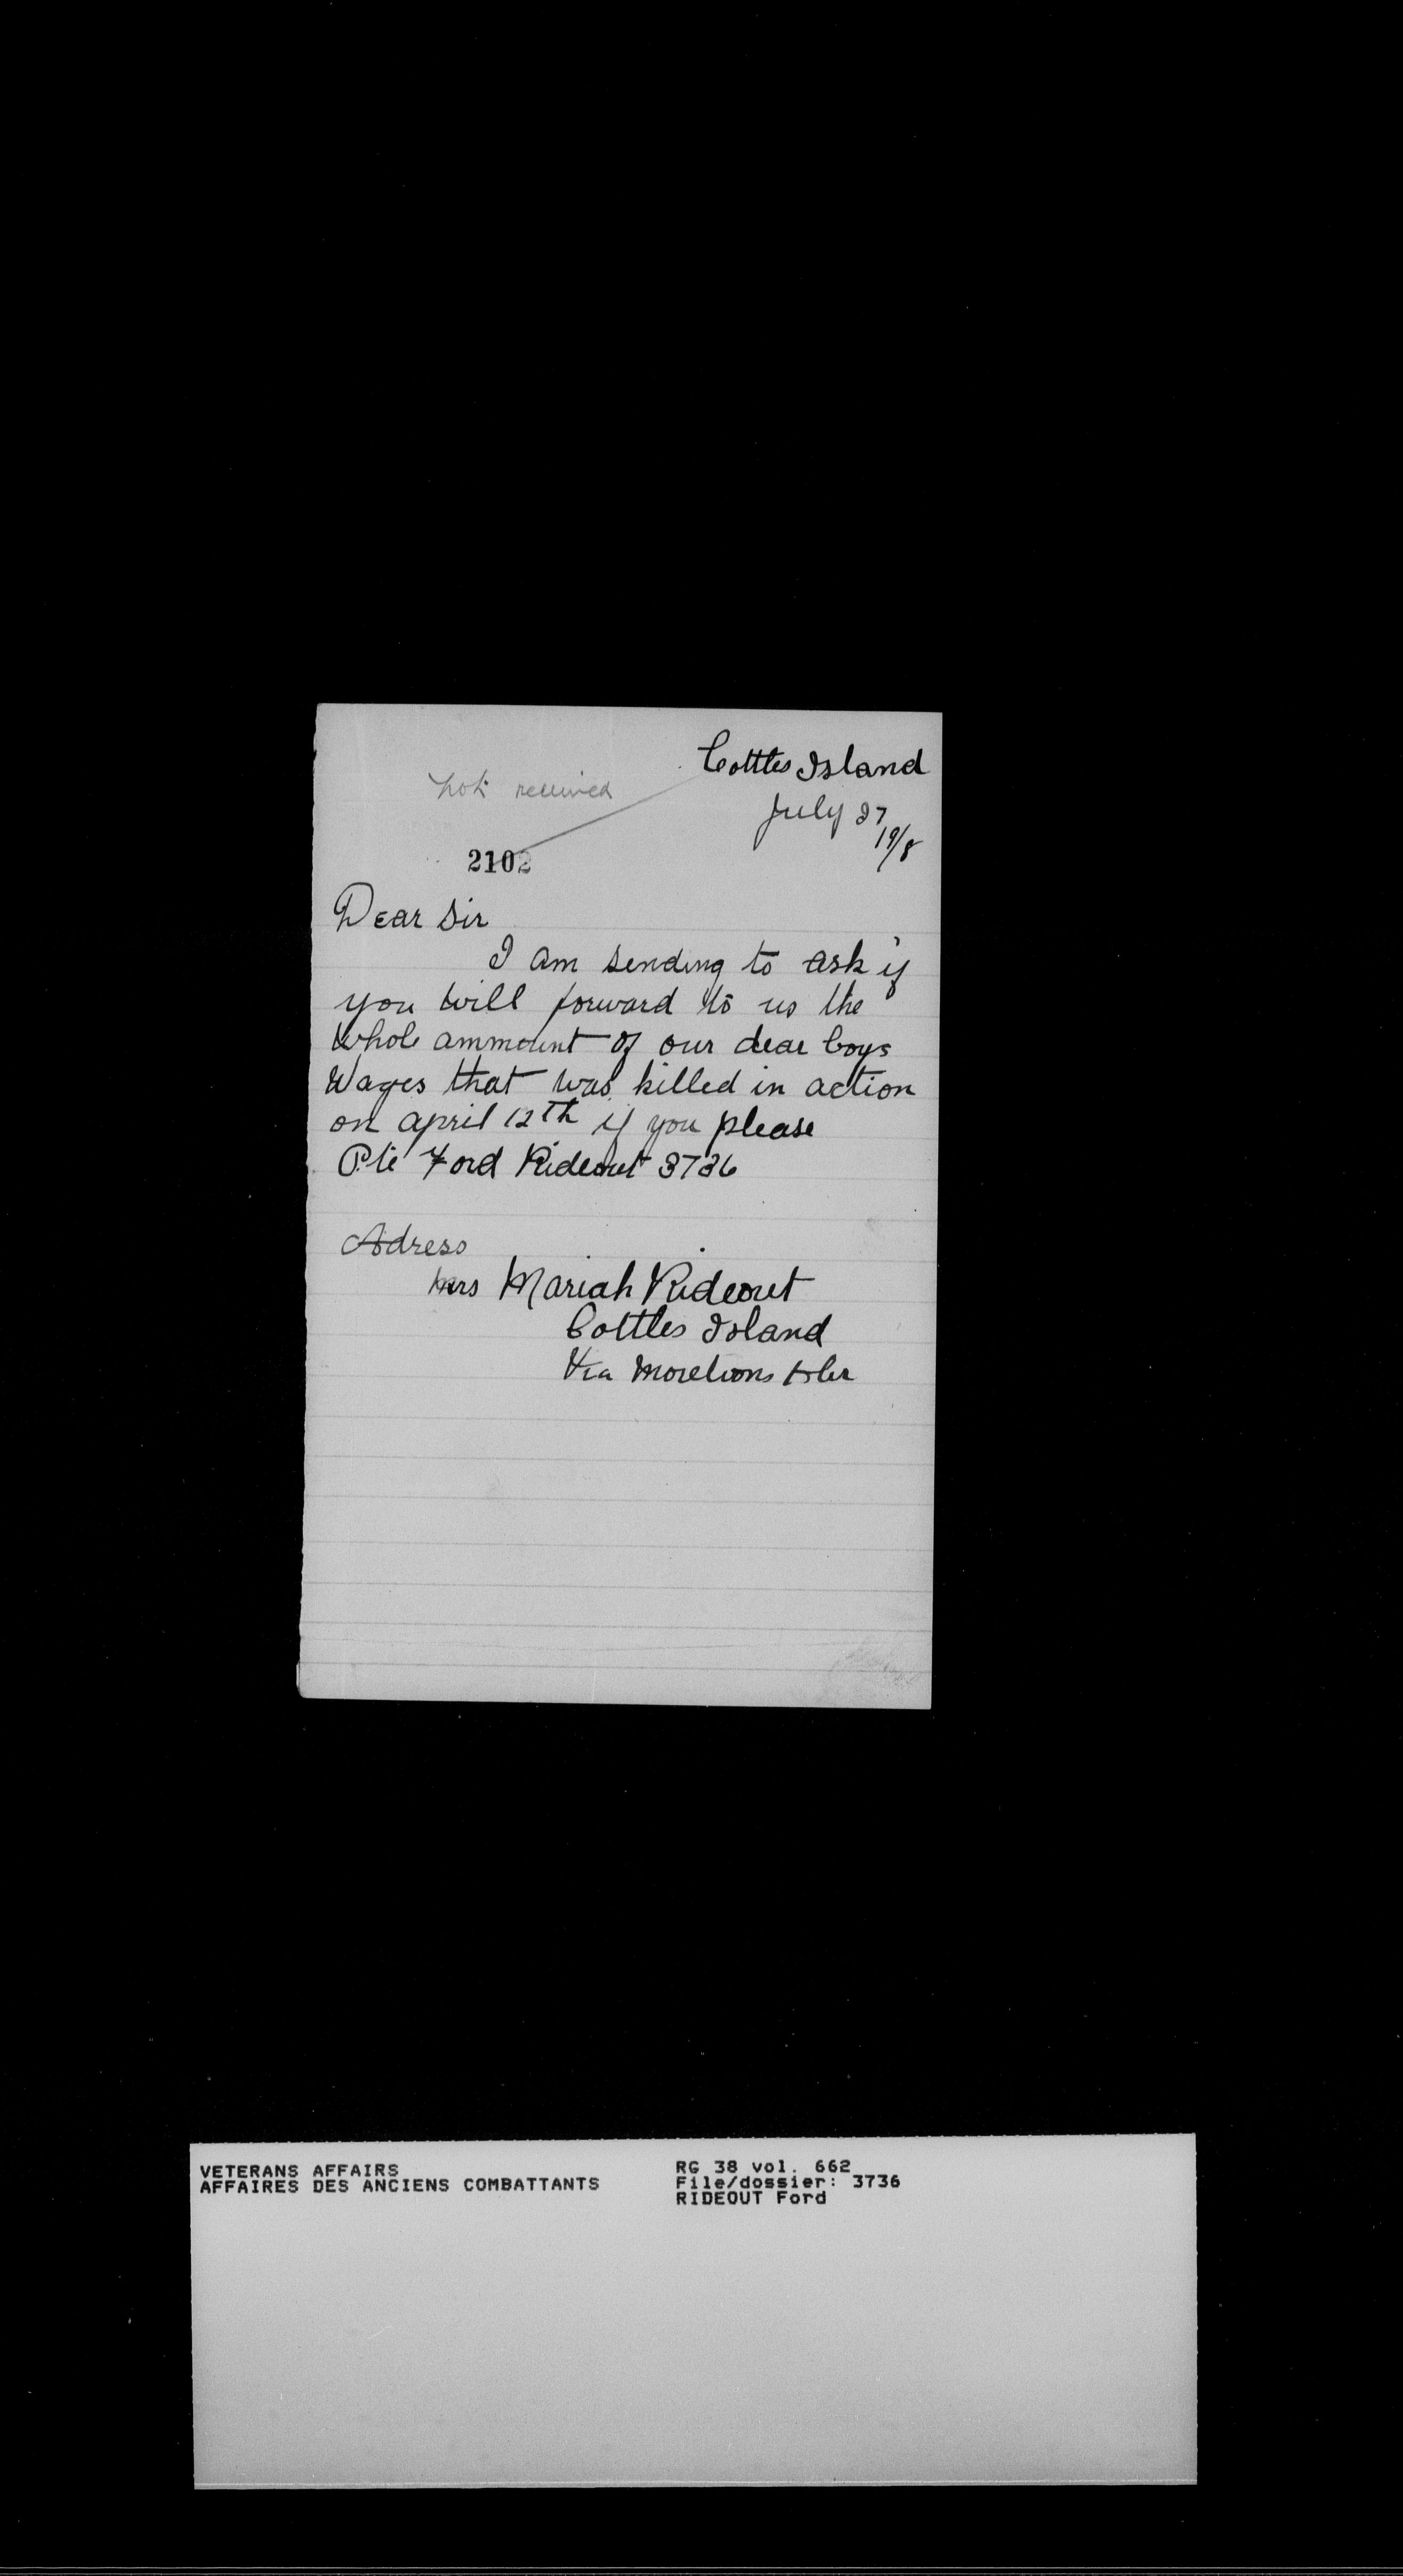 Cottles Island
not received
July 27
19/8
2102
Dear Sir
I am sending to ask if
you will forward to us the
whole ammount of our dear boys
Wages that was killed in action
on april 12th if you please
Pte Ford Rideout 3736
Adress
Mrs Mariah Rideout
Cottles Island
Via Moretons Hbr
VETERANS AFFAIRS
AFFAIRES DES ANCIENS COMBATTANTS
RG 38 vol. 662
File/dossier: 3736
RIDEOUT Ford